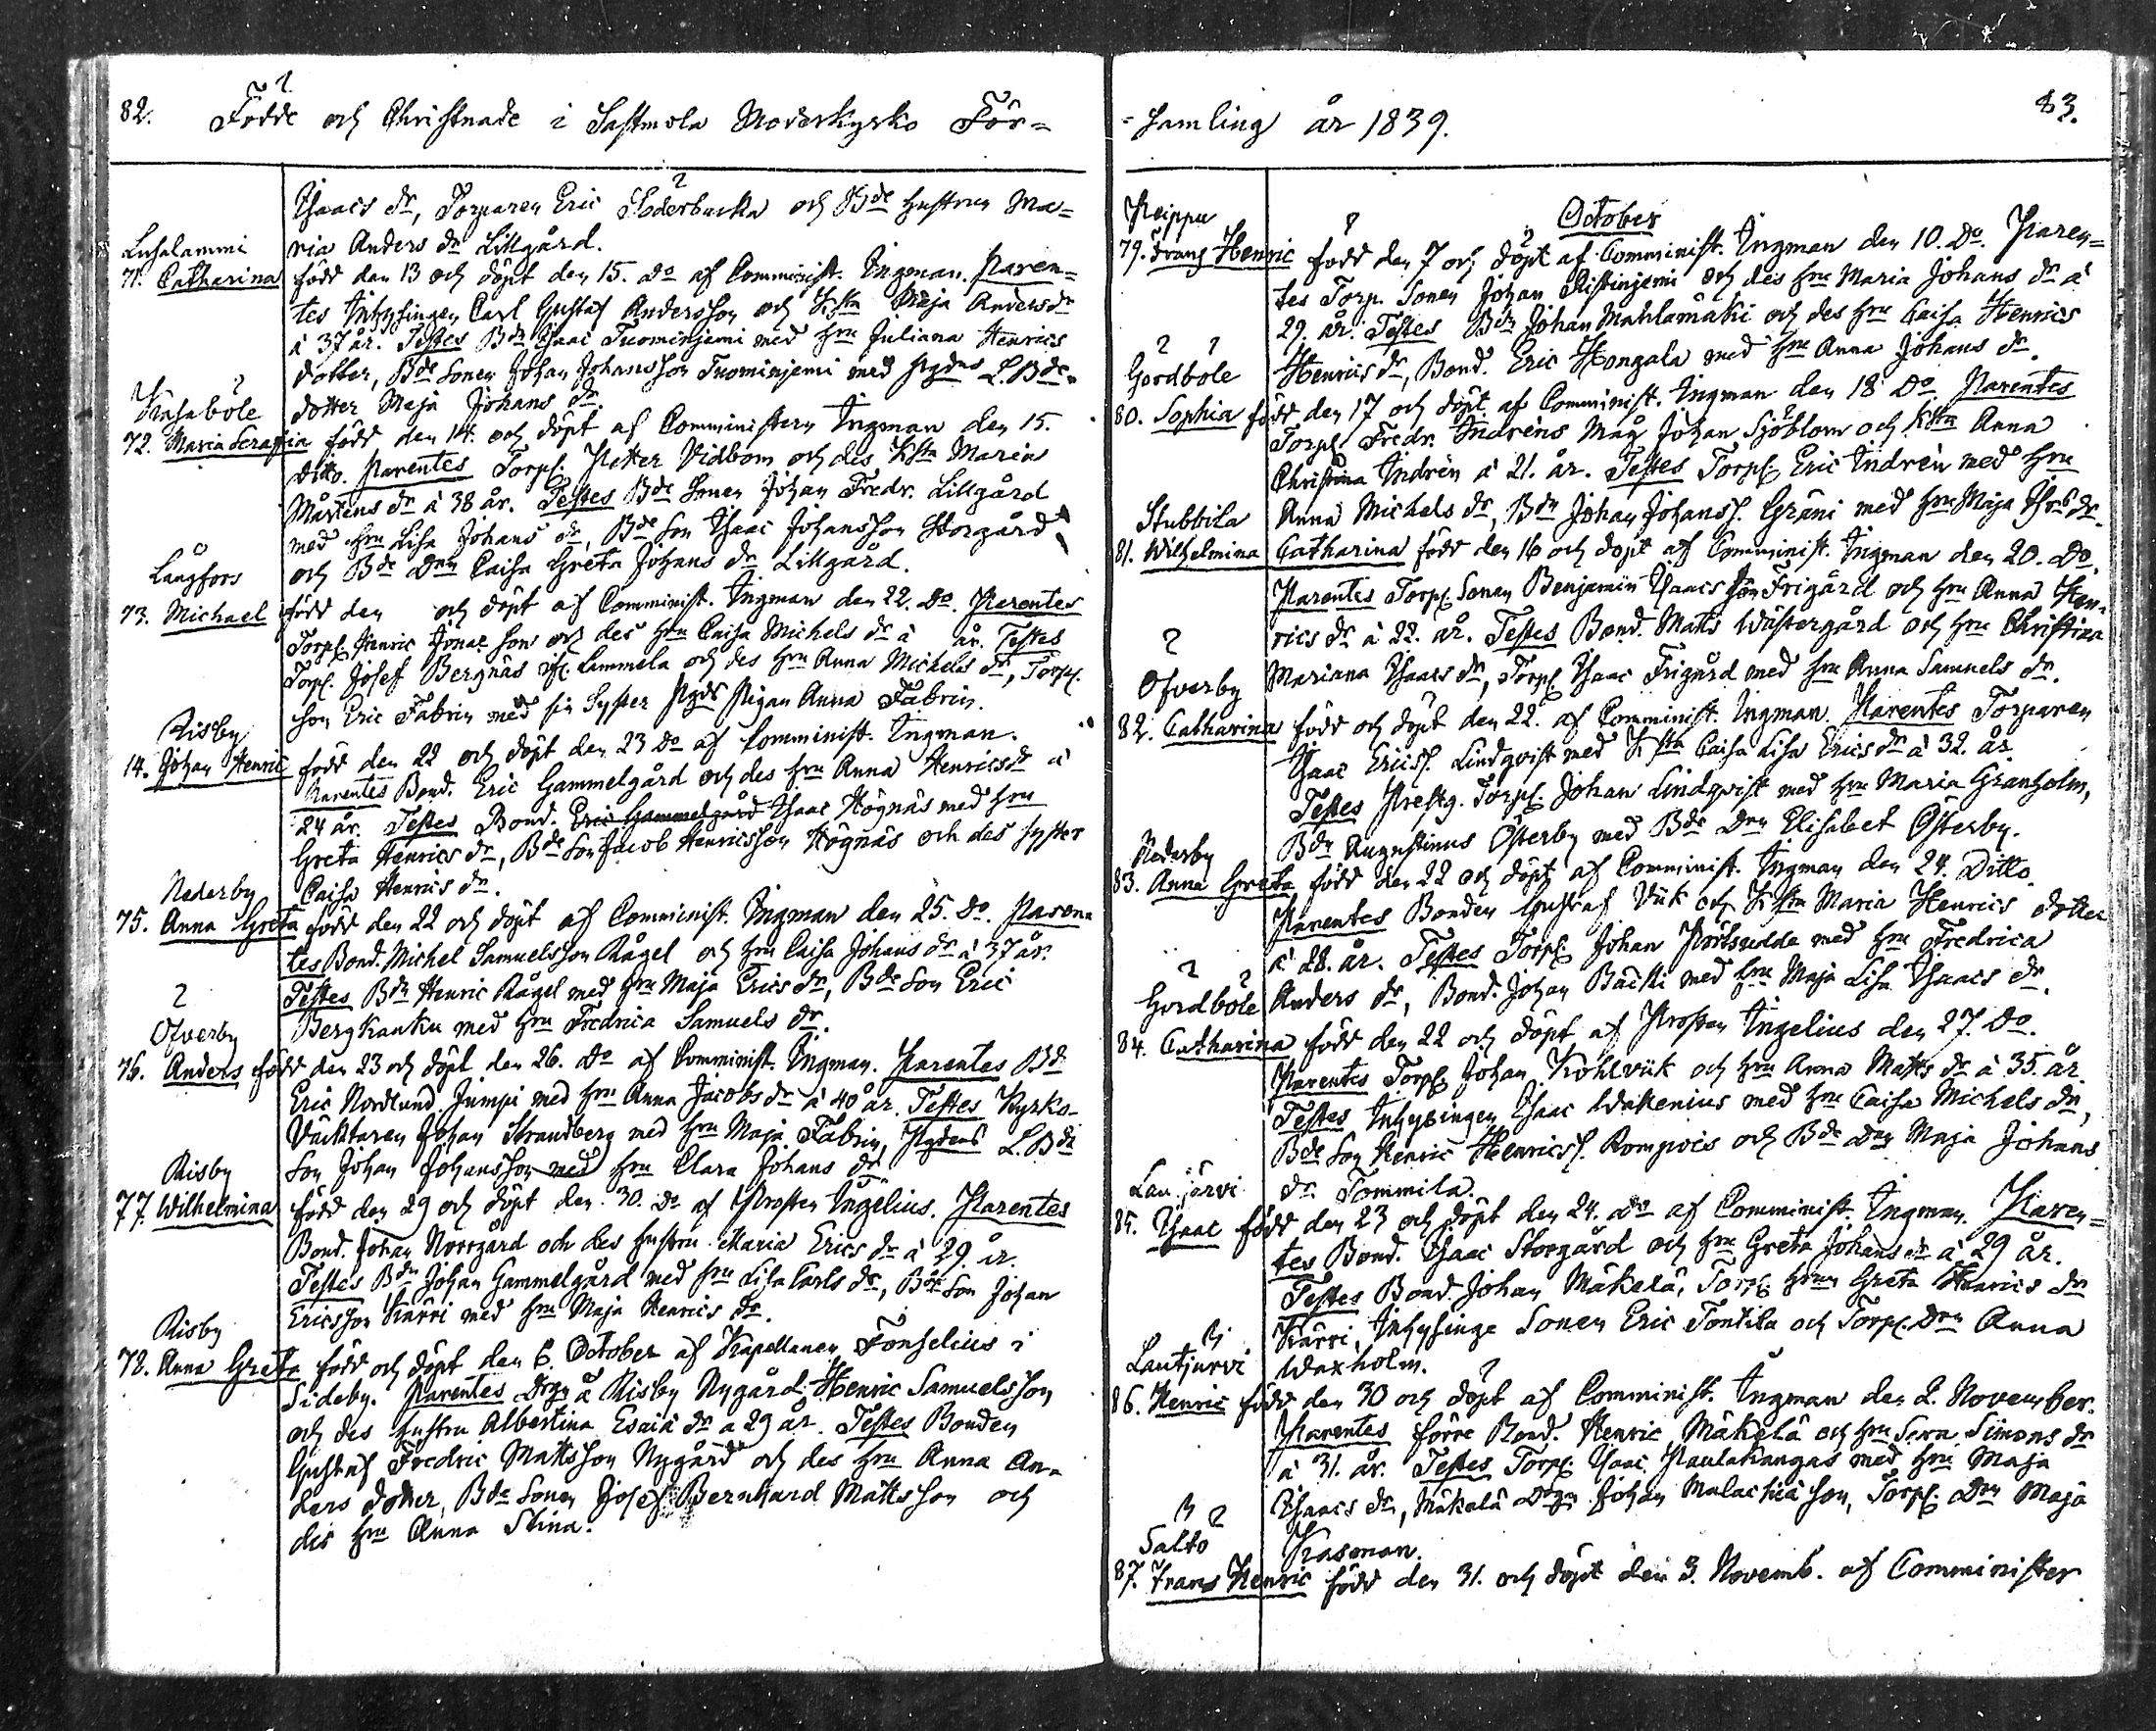 82. Födde och Christnade i Sastmola Moderkyrko För=
Isaacs dr, Torparen Eric Söderbacka och Bde hustrun Ma=
ria Anders dr Lillgård.
71. Catharina född den 13 och döpt den 15. do af Comminist. Ingman. Paren=
tes Inhysingen Carl Gustaf Andersson och Maja Anders dr
à 37 år. Testes Bdn Isaac Tuominjemi med hru Juliana Henrics
dotter, Bde Sonen Johan Johansson Tuominjemi med L. Bde=
dotter Maja Johans dr.
72. Maria född den 14. och döpt af Comministern Ingman den 15.
ditto. Parentes Torp. Petter Vidbom och des Maria
Mårtens dr à 38 år. Testes Bde Sonen Johan Fredr. Lillgård
med hru Lisa Johans dr, Bde Son Isaac Johansson Storgård
och Bde Caisa Greta Johans dr Lillgård.
Långfors
73. Michael född den och döpt af Comminist. Ingman den 22. do. Parentes
Torp. Henric son och des hru Caisa Michels dr à år. Testes
Torp. Josef Bergnäs Lammela och des hru Anna Michels dr, Torp.
son Eric Fabrin med sin Syster Pigan Anna Fabrin.
Risby
14. Johan Henric född den 22 och döpt den 23 do af Comminist. Ingman.
Parentes Bond. Eric Gammelgård och des hru Anna Henrics dr à
24 år. Testes Bond. Eric Gammelgård Isaac Högnäs med hru
Greta Henrics dr, Bde Son Jacob Henricsson Högnäs och des Syster
Caisa Henrics dr.
Nederby
75. Anna Greta född den 22 och döpt af Comminist. Ingman den 25. do. Paren
tes Bond. Michel Samuelsson Rågel och hru Caisa Johans dr à 37 år.
Testes Bdn Henric Rågel med hru Maja Erics dr, Bde Son Eric
Bergkanku med hru Fredrica Samuels dr.
Ofverby
76. Anders född den 23 och döpt den 26. do af Comminist. Ingman. Parentes Bde
Eric Nordlund Jumpi med hru Anna Jacobs dr à 40 år. Testes Kyrko-
Väcktaren Johan Strandberg med hru Maja Fabrin, L. Bde
Son Johan Johansson med hru Clara Johans dr.
Risby
77. Wilhelmina född den 29 och döpt den 30. do af Prosten Ingelius. Parentes
Bond. Johan Norrgård och des hustru Maria Erics dr à 29. år.
Testes Bdn Johan Gammelgård med hru Lisa Carls dr, Bde Son Johan
Ericsson Kärri med hru Maja Henrics dr.
Risby
78. Anna Greta född och döpt den 6. October af Kapellanen Fonselius i
Sideby. Parentes å Risby Nygård Henric Samuelsson
och des hustru Albertina Esaiæ dr a 29 år. Testes Bonden
Gustaf Fredric Mattsson Nygård och des hru Anna An=
ders dotter, Bde Sonen Josef Bernhard Mattsson och
des hru Anna Stina.
=samling år 1839. 83.
October
79. Frans Henric född den 7 och döpt af Comminist. Ingman den 10. do. Paren=
tes Torp. Sonen Johan Ristinjemi och des hru Maria Johans dr à
29. år. Testes Bdn Johan Mahlamäki och des hru Caisa Henrics
Henrics dr, Bond. Eric Hongala med hru Anna Johans dr.
Gordböle
80. Sophia född den 17 och döpt af Comminist. Ingman den 18 do. Parentes
Torp. Fredr. Indrens Måg Johan Sjöblom och Anna
Christina Indrèn à 21. år. Testes Torp. Eric Indrèn med hru
Anna Michels dr, Bdn Johan Johanss. Gräni med hru Maja dr.
Stubbila
81. Wilhelmina Catharina född den 16 och döpt af Comminist. Ingman den 20. do.
Parentes Torp. Sonen Benjamin Isaacs Son Frigård och hru Anna Hen=
rics dr à 22. år. Testes Bond. Matts Wästergård och hru Christina
Mariana Isaacs dr, Torp. Isaac Frigård med hru Anna Samuels dr.
Ofverby
82. Catharina född och döpt den 22. af Comminist. Ingman. Parentes Torparen
Isaac Ericss. Lindqvist med Caisa Lisa Erics dr à 32. år
Testes Torp. Johan Lindqvist med hru Maria Granholm,
Bdn Augustinus Österby med Bde Elisabet Österby.
Nederby
83. Anna Greta född den 22 och döpt af Comminist. Ingman den 24. Ditto.
Parentes Bonden Gustaf Viik och Maria Henrics dotter
à 28. år. Testes Torp. Johan med hru Fredrica
Anders dr, Bond. Johan Bäcki med hru Maja Lisa Isaacs dr.
Gordböle
84. Catharina född den 22 och döpt af Prosten Ingelius den 27. do.
Parentes Torp. Johan Kohlviik och hru Anna Matts dr à 35. år.
Testes Inhysingen Isaac Wakenius med hru Caisa Michels dr,
Bde Son Henric Henricss. Rompois och Bde Maja Johans
dr Tommila.
85. Isaac född den 23 och döpt den 24. do af Comminist. Ingman. Paren=
tes Bond. Isaac Storgård och hru Greta Johans dr à 29 år.
Testes Bond. Johan Mäkelä, Torp. Greta Henrics dr
Kärri, Inhysinge Sonen Eric Tontila och Torp. Anna
Waxholm.
Lautjärvi
86. Henric född den 30 och döpt af Comminist. Ingman den 2. November.
Parentes förre Bond. Henric Mäkelä och hru Simons dr
à 31. år. Testes Torp. Isaac Paulakangas med hru Maja
Isaacs dr, Mäkelä Johan Malachiæ son, Torp. Maja
Krasman.
Salto
87. Frans Henric född den 31. och döpt den 3. Novemb. af Comminister